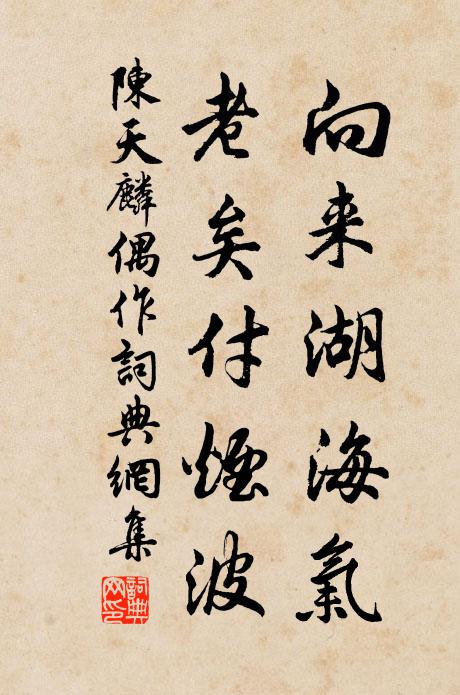 向来湖海氣
老矣付煙波
陳天麟偶作詞典網集
詞典网印